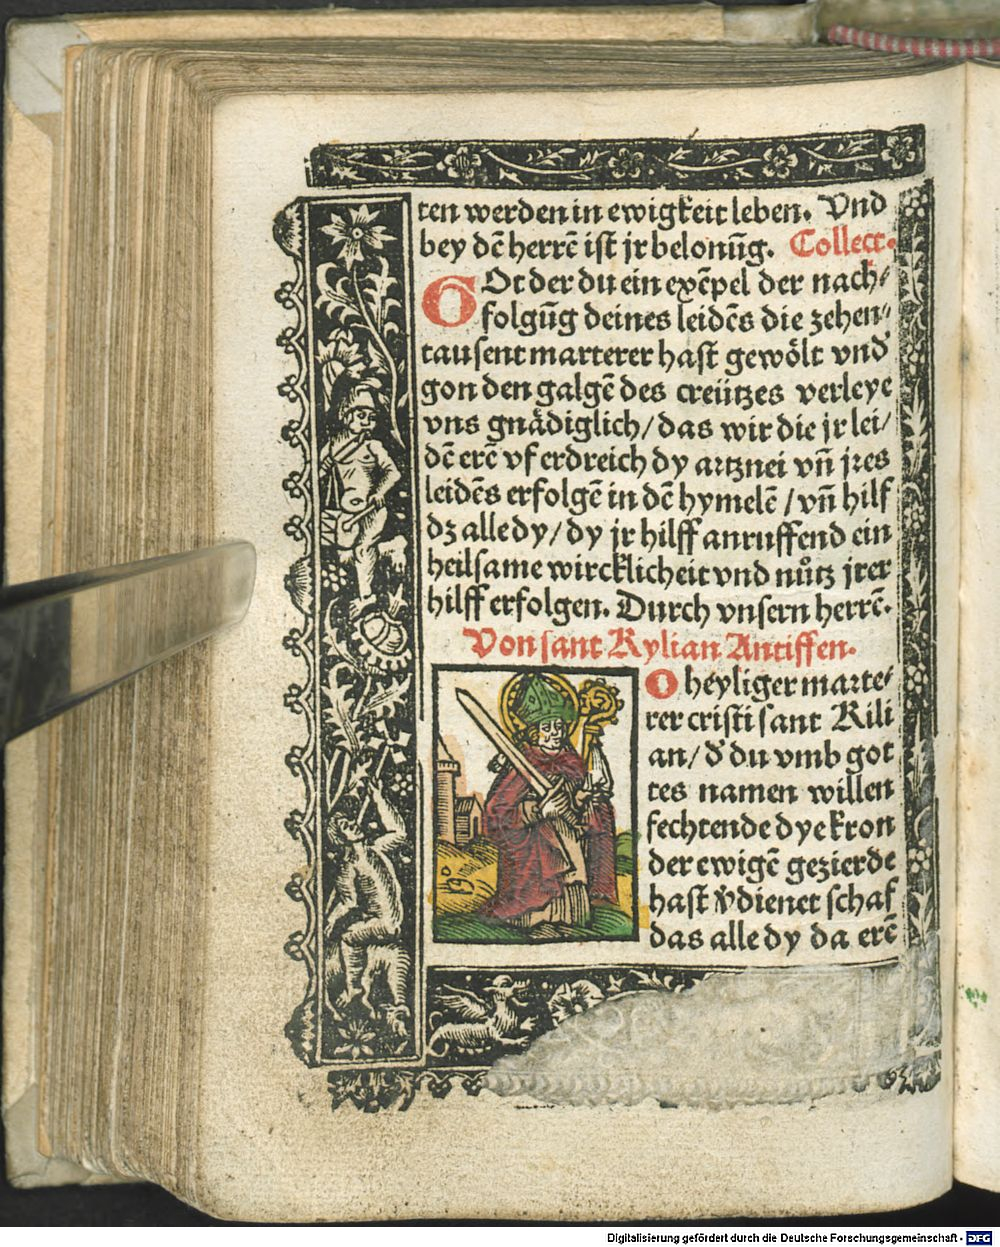 ten werden in ewigkeit leben. Vnd
bey dē herrē ist jr belonūg. Collect.
GOt der du ein exēpel der nach⸗
folgūg deines leidēs die zehen⸗
tausent marterer hast gewölt vnd
gon den galgē des creützes verleye
vns gnädiglich/ das wir die jr lei/
dē erē vf erdreich dy artznei vn̄ jres
leidēs erfolgē in dē hymelē/ vn̄ hilf
dz alle dy/ dy jr hilff anruffend ein
heilsame wircklicheit vnd nůtz jrer
hilff erfolgen. Durch vnsern herrē.
Von sant Kylian Antiffen.
O heyliger marte⸗
rer cristi sant Kili
an/ d̕ du vmb got
tes namen willen
fechtende dye kron
der ewigē gezierde
hast v̕dienet schaf
das alle dy da erē
Digitalisierung gefördert durch die Deutsche Forschungsgemeinschaft - DFG